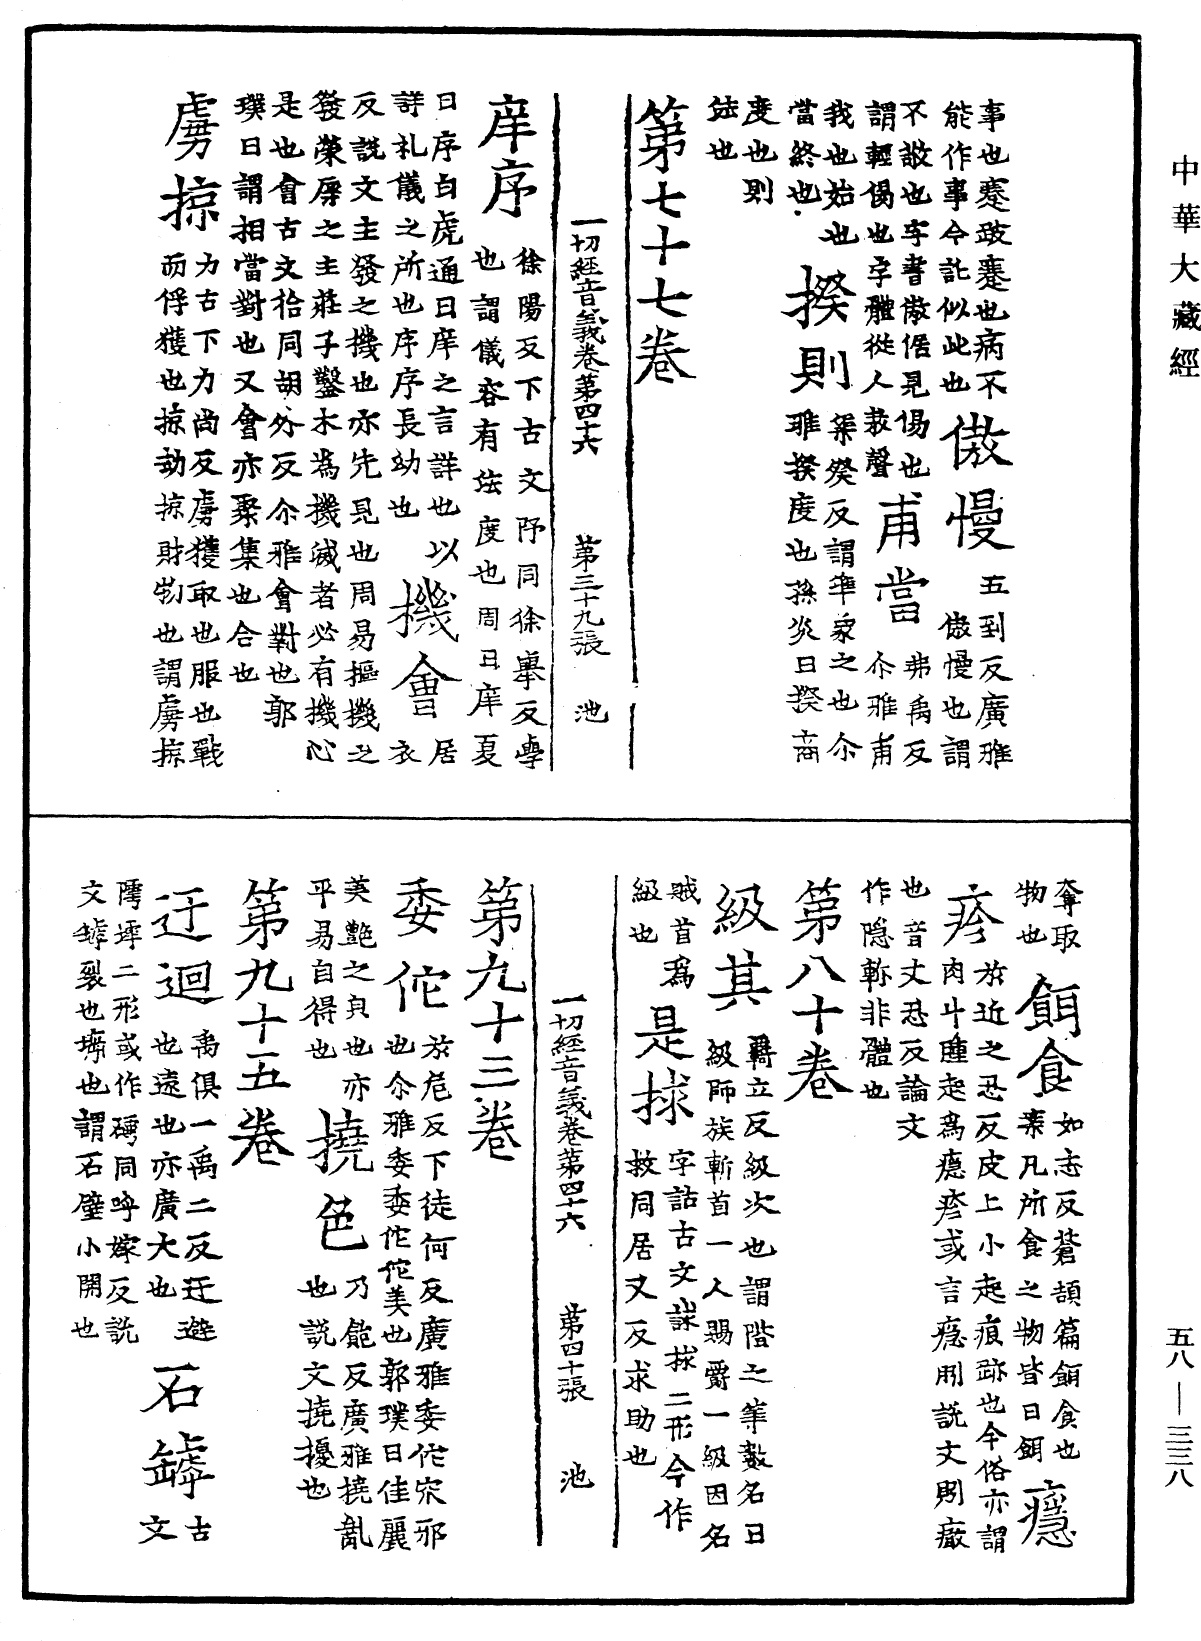 中華大藏經
事也蹇跛蹇也病不
能作事今託似此也
傲慢
五到反廣雅
傲慢也謂
不敬也字書傲倨見傷也
謂輕傷也字體從人敖聲
甫當
弗禹反
尒雅甫
我也始也
當終也
揆則
渠癸反謂準衆之也尒
雅揆度也孫炎曰揆商
度也則
法也
第七十七卷
一切經音義卷第四十六 第三十九張 池
庠序
徐陽反下古文阩同徐舉反學
也謂儀容有法度也周曰庠夏
曰序白虎通曰庠之言詳也以
詳礼儀之所也序序長幼也
機會
居
衣
反說文主發之機也亦先見也周易摳機之
發榮辱之主莊子鑿木為機滅者必有機心
是也會古文㣛同胡外反尒雅會對也郭
璞曰謂相當對也又會亦聚集也合也
虜掠
力古下力尚反虜獲取也服也戰
而俘獲也掠劫掠財物也謂虜掠
奪取
物也
餌食
如志反蒼頡篇餌食也
素凡所食之物皆曰餌
癮
疹
於近之忍反皮上小起痕跡也今俗亦謂
肉斗腫起為癮疹或言癮𦙠說文𦙠瘢
也音丈忍反論文
作隱軫非體也
第八十卷
級其
羈立反級次也謂階之等數名曰
級師族斬首一人賜爵一級因名
賊首為
級也
是捄
字詁古文誺捄二形今作
救同居又反求助也
一切經音義卷第四十六 第四十張 池
第九十三卷
委佗
於危反下徒何反廣雅委佗宎邪
也尒雅委委佗佗美也郭璞曰佳麗
美艷之皃也亦
平易自得也
撓色
乃飽反廣雅撓亂
也說文撓擾也
第九十五卷
迂迴
禹俱一禹二反迂避
也遠也亦廣大也
石罅
古
文
㙤㙤二形或作𥕥同呼嫁反說
文罅裂也㙤也謂石壁小開也
五八—三三八